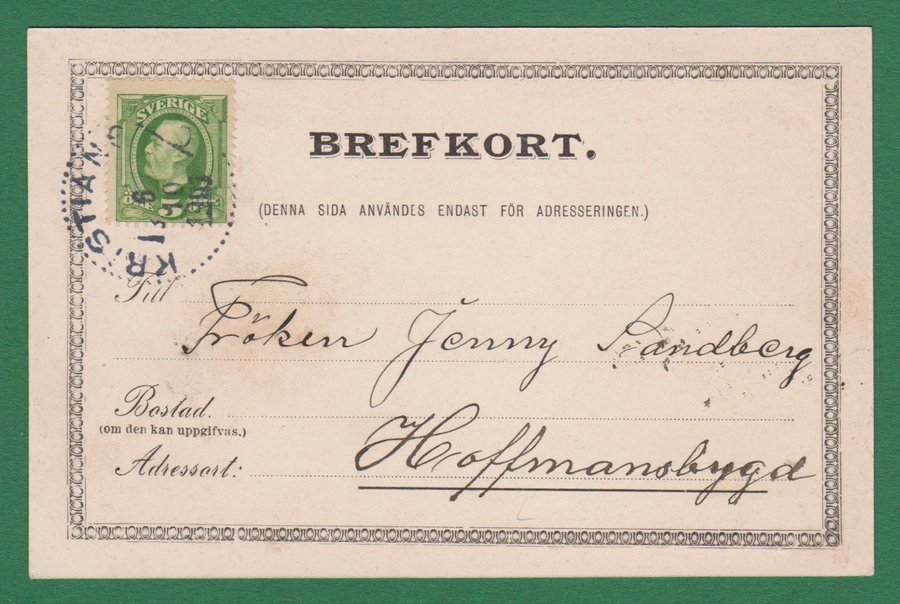 SVERIGE
5
KRISTIANST
BREFKORT.
(DENNA SIDA ANVÄNDES ENDAST FÖR ADRESSERINGEN.)
Till Fröken Jenny Sandberg
Bostad.
(om den kan uppgifvas.)
Adressort: Hoffmansbygd